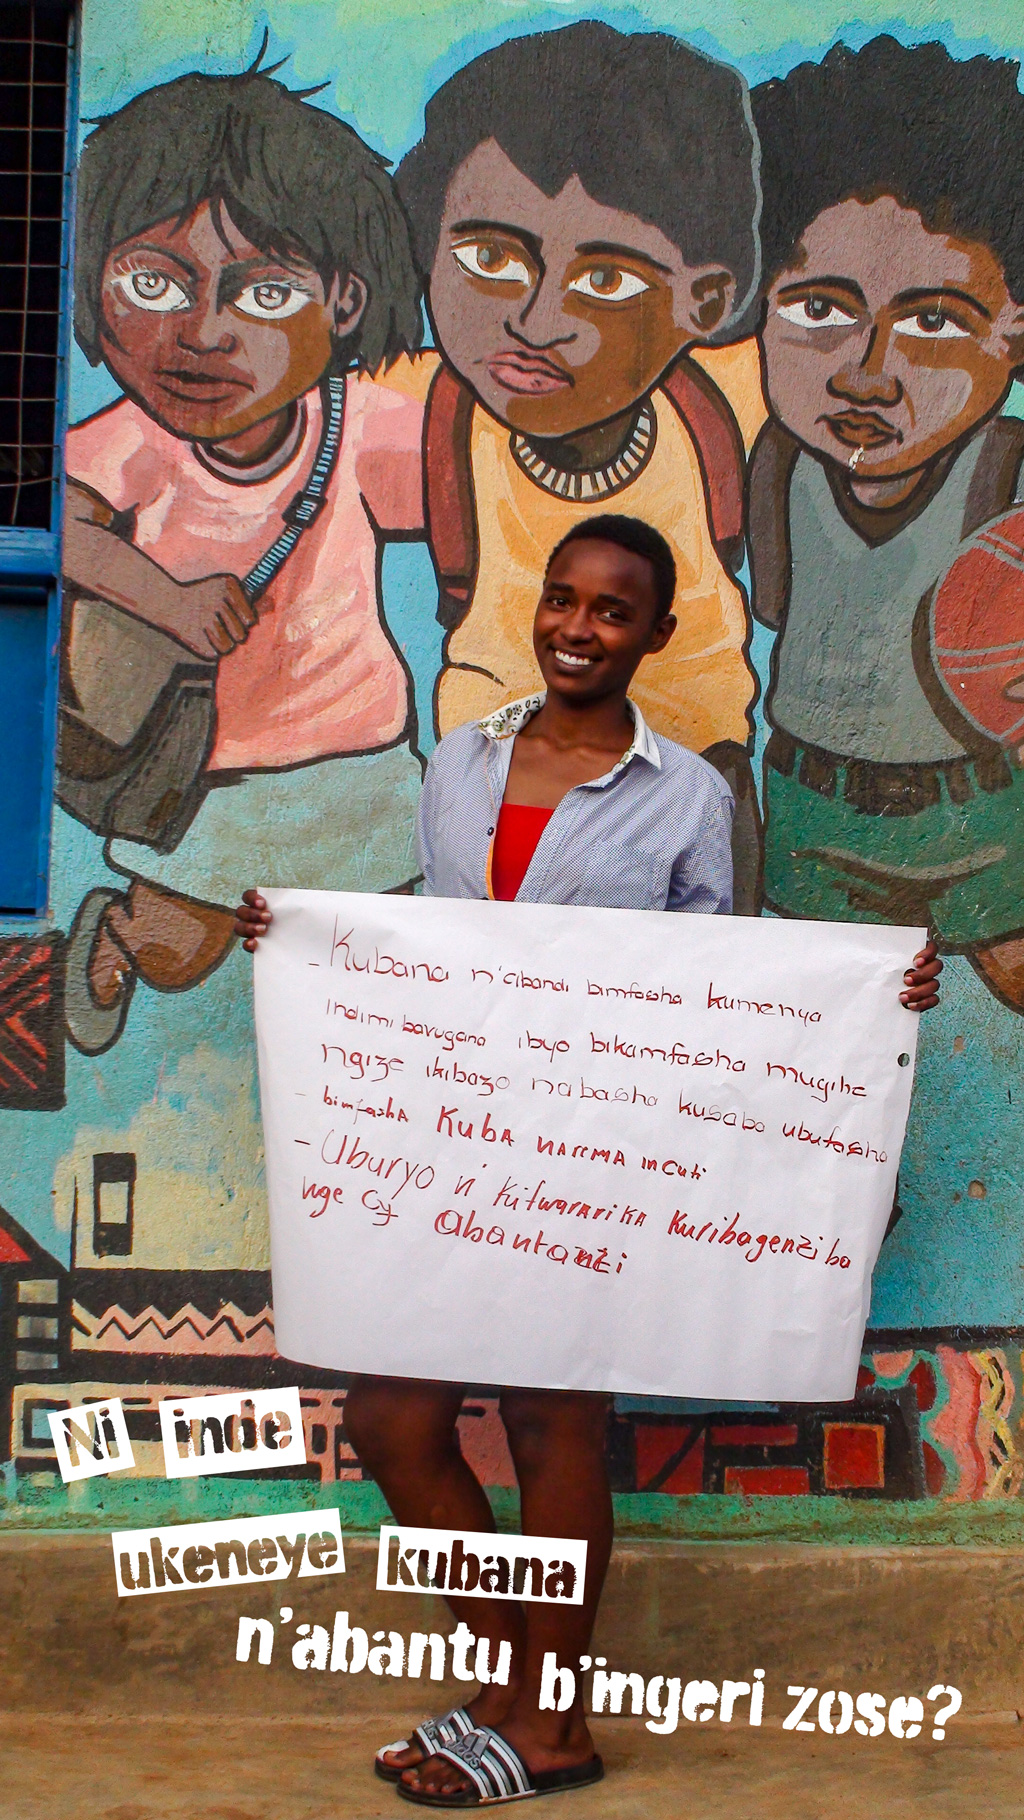 - Kubana n'abandi bimfasha kumenya
indimi bavugana ibyo bikamfasha mugihe
ngize ikibazo nabasha kusaba ubufasha
- bimfasha Kuba
- Uburyo ni Kuribagenzi ba
nge cy abanta
Ni inde
ukeneye kubana
n'abantu b'ingeri zose?
adidas